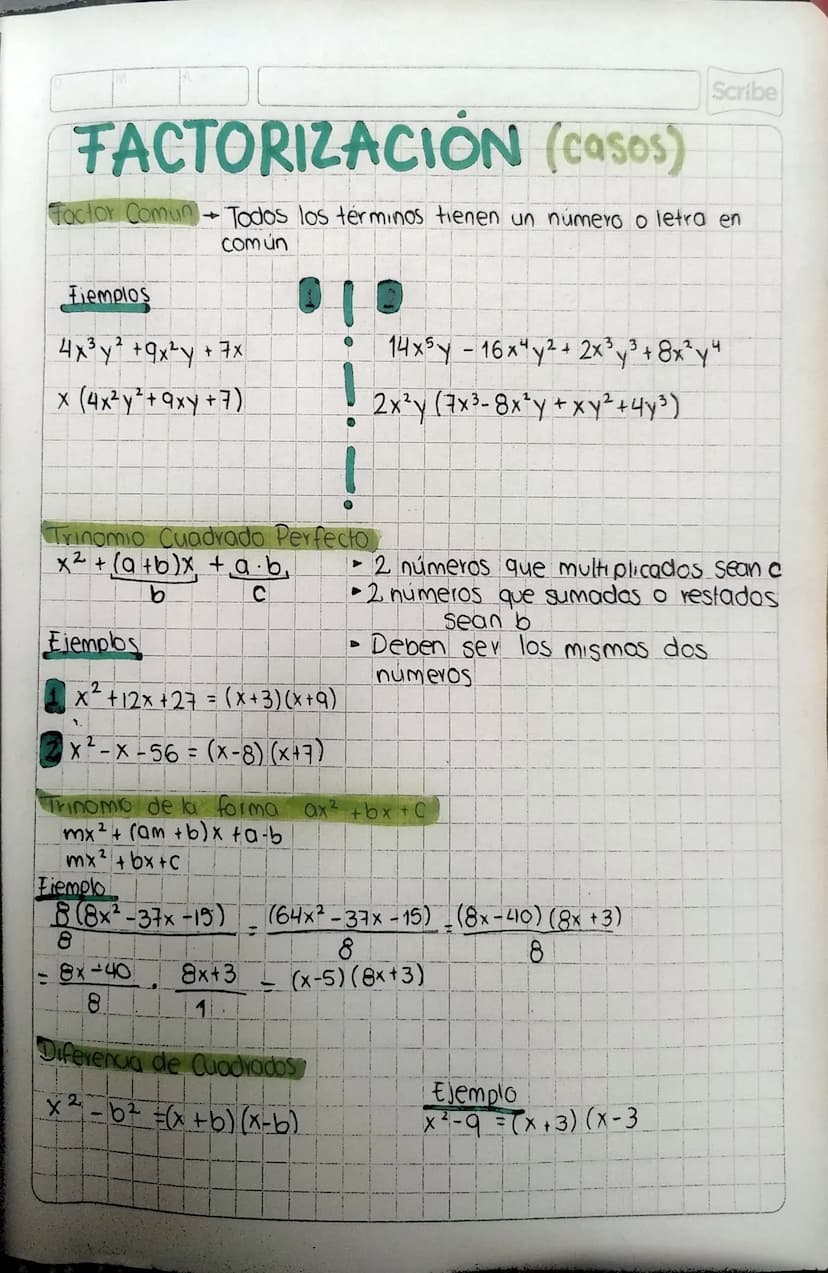 Scribe
FACTORIZACIÓN (casos)
Factor Comun → Todos los términos tienen un número o letra en
común
Ejemplos
1 2
4x³y² + 9x²y + 7x
14x⁵y - 16x⁴y² + 2x³y³ + 8x²y⁴
x (4x²y² + 9xy + 7)
2x²y (7x³ - 8x²y + xy² + 4y³)
Trinomio Cuadrado Perfecto
x² + (a+b)x + a·b
b c
▸ 2 números que multiplicados sean c
▸ 2 números que sumados o restados
sean b
▸ Deben ser los mismos dos
números
Ejemplos
1 x² + 12x + 27 = (x+3)(x+9)
2 x² - x - 56 = (x-8)(x+7)
Trinomio de la forma ax² + bx + c
mx² + (am + b)x + a·b
mx² + bx + c
Ejemplo
8(8x² - 37x - 15)/8 = (64x² - 37x - 15)/8 = (8x - 40)(8x + 3)/8
= 8x - 40/8 · 8x+3/1 = (x-5)(8x+3)
Diferencia de Cuadrados
x² - b² = (x + b)(x-b)
Ejemplo
x² - 9 = (x + 3)(x - 3